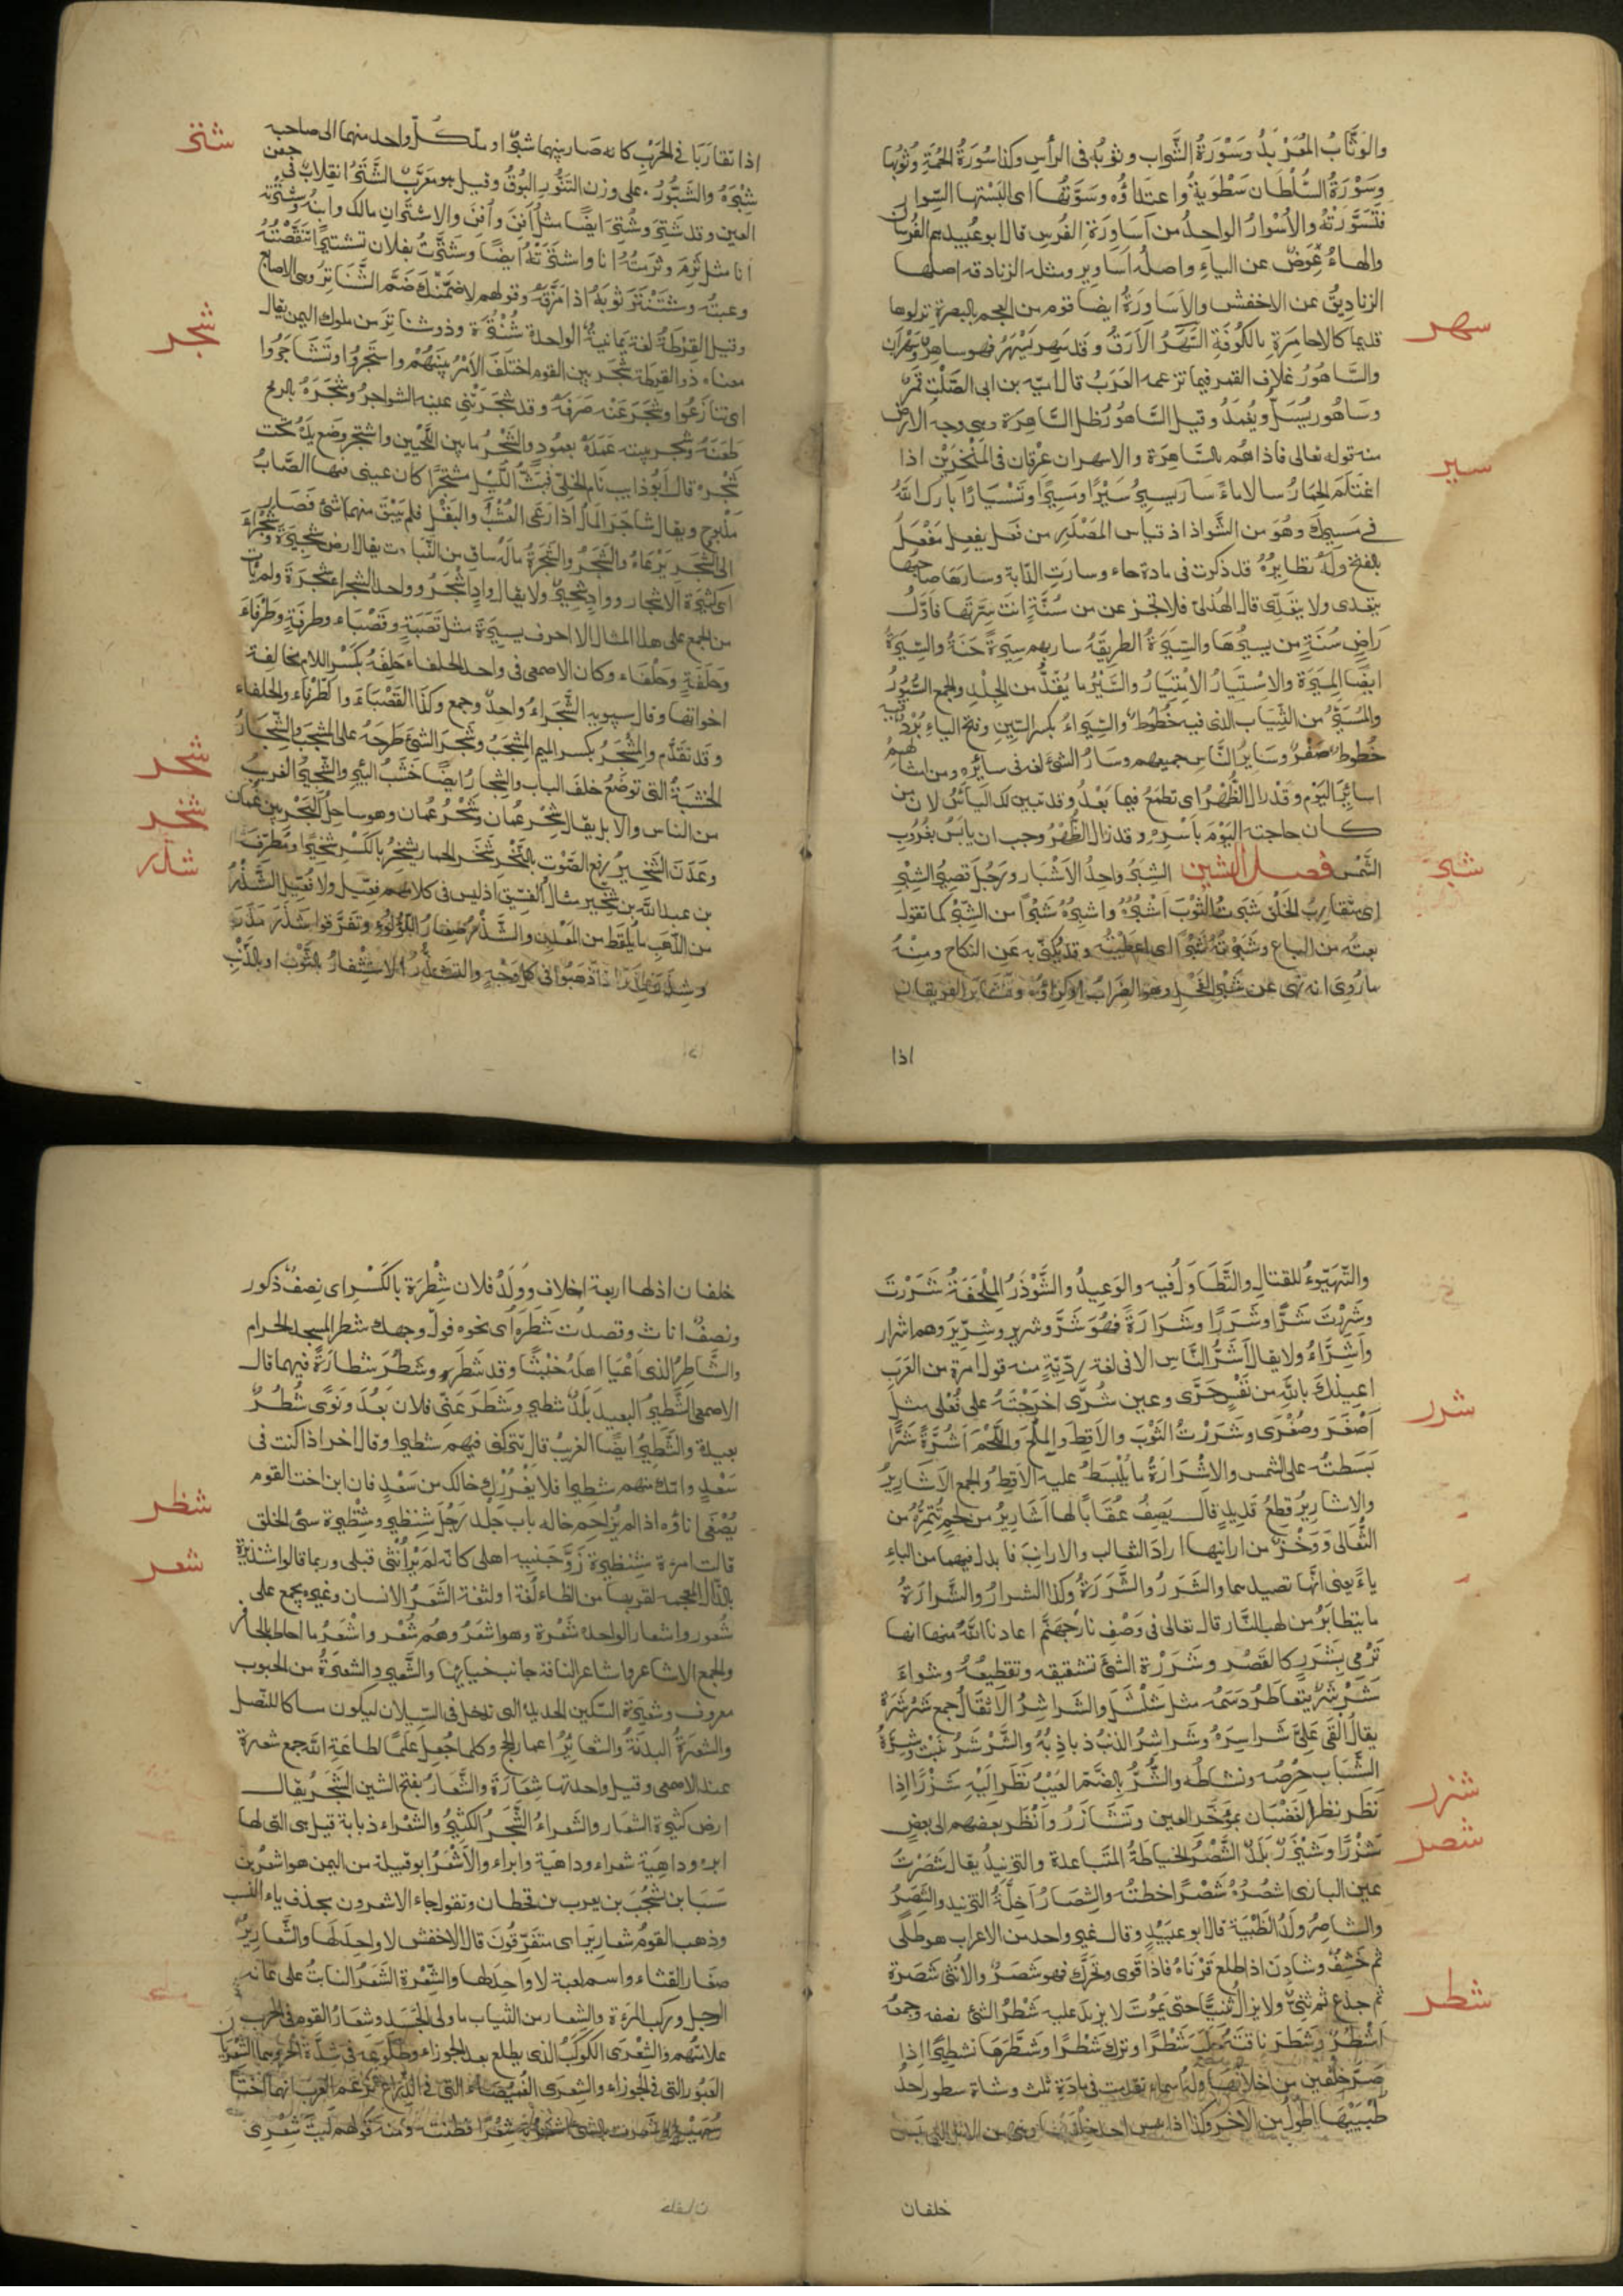 والوثاب المعربد وسورة الشراب وثوبه فى الرأس وكذا سورة الحمة وثوبها
وسورة السلطان سطوته واعتداؤه وسورتها اى البستها السوار
فتسورته والأسوار الواحد من اساورة الفرس قال ابو عبيد هم الفرسان
والهاء عوض عن الياء واصله اساوير ومثله الزنادقة اصلها
الزناديق عن الاخفش والأساورة ايضا قوم من العجم بالبصرة نزلوها
سهر
قديما كالاحامرة بالكوفة السهر الأرق وقد سهر يسهر فهو ساهر وسهران
والساهور غلاف القمر فيما تزعمه العرب قال امية بن ابى الصلت قمر
وساهور يسل ويغمد وقيل الساهور ظل الساهرة وهى وجه الارض
منه قوله تعالى فاذا هم بالساهرة والاسهران عرقان فى المنخرين اذا
سير
اغتلم الحمار سالا ماء سار يسير سيرا ومسيرا وتسيارا بارك الله
فى مسيرك وهو من الشواذ اذ قياس المصدر من فعل يفعل مفعل
بالفتح وله نظائر قد ذكرت فى مادة حاء وسارت الدابة وسارها صاحبها
يتعدى ولا يتعدى قال الهذلى فلا تجزعن من سنة انت سرتها فاول
راض سنة من يسيرها والسيرة الطريقة سار بهم سيرة حسنة والسيرة
ايضا الميرة والاستيار الامتيار والسير ما يقد من الجلد والجمع السيور
والمسير من الثياب الذى فيه خطوط والسيراء بكسر السين وفتح الياء برد فيه
خطوط صفر وسائر الناس جميعهم وسار الشئ لغة فى سائره ومن امثالهم
اسائر اليوم وقد زال الظهر اى تطمع فيما بعد وقد تبين لك اليأس لان من
كان حاجته اليوم بأسره وقد زال الظهر وجب ان يأيس بغروب
شبر
الشمس فصل الشين الشبر واحد الاشبار ورجل قصير الشبر
اى متقارب الخلق شبرت الثوب اشبره واشبره شبرا من الشبر كما تقول
بعته من الباع وشبرته شبرا اى اعطيته وقد يكنى به عن النكاح ومنه
ما روى انه نهى عن شبر الفحل وهو الضراب او كراؤه وتشابر الفريقان
اذا
اذا تقاربا فى الحرب كانه صار بينهما شبر او مد كل واحد منهما الى صاحبه
شتر
شبره والشبور على وزن التنور البوق وقيل هو معرب الشتر انقلاب فى جفن
العين وقد شتر وشتر ايضا مثل افن وأفن والاشتران مالك وابنه وشترته
انا مثل ثرم وثرمته انا واشترته ايضا وشترت بفلان تشتيرا تنقصته
وعبته وشنتر ثوبه اذا مزقه وقولهم لاضمنك ضم الشناتر وهى الاصابع
وقيل القرطة لغة يمانية الواحدة شنترة وذو شناتر من ملوك اليمن يقال
شجر
معناه ذو القرطة شجر بين القوم اختلف الامر بينهم واشتجروا وتشاجروا
اى تنازعوا وشجر عنه صرفه وقد شجرتنى عنه الشواجر وشجره بالرمح
طعنه وشجر بيته عمده بعمود والشجر ما بين اللحيين واشتجر وضع يده تحت
شجره قال ابو ذؤيب نام الخلى فبت الليل مشتجرا كان عينى فيها الصاب
مذبوح ويقال شاجر المال اذا رعى العشب والبقل فلم يبق منهما شئ فصار
الى الشجر يرعاه والشجر والشجرة ما له ساق من النبات يقال ارض شجيرة وشجراء
اى كثيرة الاشجار وواد شجير ولا يقال واد اشجر وواحد الشجراء شجرة ولم يات
من الجمع على هذا المثال الا احرف يسيرة مثل قصبة وقصباء وطرفة وطرفاء
وحلفة وحلفاء وكان الاصمعى فى واحد الحلفاء حلفة بكسر اللام مخالفة
اخواتها وقال سيبويه الشجراء واحد وجمع وكذا القصباء والطرفاء والحلفاء
وقد تقدم والمشجر بكسر الميم المشجب وشجر الشئ طرحه على المشجب والشجار
شحر
الخشبة التى توضع خلف الباب والشجار ايضا خشب البئر والشجير الغريب
من الناس والابل يقال شحر عمان وشحر عمان وهو ساحل البحر بين عمان
شخر
وعدن الشخير رفع الصوت بالنخر شخر الحمار يشخر بالكسر شخيرا ومطرف
شذر
بن عبد الله بن شخير مثال الفسيق اذ ليس فى كلامهم فعيل ولا فعيل الشذر
من الذهب ما يلقط من المعدن والشذر صغار اللؤلؤ وتفرقوا شذر مذر
وشذر مذر اذا ذهبوا فى كل وجه والتشذر الاستثفار بالثوب او بالذنب
والتهيؤ للقتال والتطاول فيه والوعيد والشوذر الملحفة شررت
وشررت شرا وشررا وشرارة فهو شر وشرير وشرير وهم اشرار
واشراء ولا يقال اشر الناس الا فى لغة ردية منه قول امرة من العرب
شرر
اعيذك بالله من نفس حرى وعين شرى اخرجته على فعلى مثل
اصغر وصغرى وشررت الثوب والاقط والملح واللحم اشره شرا
بسطته على الشمس والاشرارة ما يبسط عليه الاقط والجمع الاشارير
والاشارير قطع قديد قال يصف عقابا لها اشارير من لحم تتمره من
الثعالى ووخز من ارانيها اراد الثعالب والارانب فابدل فيهما من الباء
ياء يعنى انها تصيدهما والشرر والشررة وكذا الشرار والشرارة
ما يتطاير من لهب النار قال تعالى فى وصف نار جهنم اعاذنا الله منها انها
ترمى بشرر كالقصر وشررة الشئ تشقيقه وتقطيعه وشواء
شرشر يتقاطر دسمه مثل شلشل والشراشر الاثقال جمع شرشرة
يقال القى على شراشره وشراشر الذنب ذباذبه والشرشر نبت وشرة
الشباب حرصه ونشاطه والشر بالضم العيب نظر اليه شزرا اذا
شزر
نظر نظر الغضبان بمؤخر العين وتشازروا نظر بعضهم الى بعض
شصر
شزرا وشيزر بلد الشصر الخياطة المتباعدة والتزنيد يقال شصرت
عين البازى اشصره شصرا اخطته والشصار اخلة التزنيد والشصر
والشاصر ولد الظبية قال ابو عبيد وقال غير واحد من الاعراب هو طلى
ثم خشف وشادن اذا طلع قرناه فاذا قوى وتحرك فهو شصر والانثى شصرة
شطر
ثم جذع ثم ثنى ولا يزال ثنيا حتى يموت لا يزيد عليه شطر الشئ نصفه وجمعه
اشطر وشطر ناقته شطرا وترك شطرا وشطرها تشطيرا اذا
صر خلفين من اخلافها ولها اسماء تقدمت فى مادة ثلث وشاة شطور احد
طبييها اطول من الآخر وكذا اذا يبس احد خلفيها وهى من الابل التى يبس
خلفان
خلفان اذ لها اربعة اخلاف وولد فلان شطرة بالكسر اى نصف ذكور
ونصف اناث وقصدت شطره اى نحوه فول وجهك شطر المسجد الحرام
والشاطر الذى اعيا اهله خبثا وقد شطر وشطر شطارة فيهما قال
الاصمعى الشطير البعيد بلد شطير وشطر عنى فلان بعد ونوى شطر
بعيدة والشطير ايضا الغريب قال لا تتركنى فيهم شطيرا وقال اخر اذا كنت فى
سعد وامك منهم شطيرا فلا يغررك خالك من سعد فان ابن اخت القوم
شظر
يصغى اناؤه اذا لم يزاحم خاله باب جلد رجل شنظير وشنظيرة سئ الخلق
شعر
قالت امرءة شنظيرة زوجنيه اهلى كانه لم ير انثى قبلى وربما قالوا شنذيرة
بالذال المعجمة لقربها من الظاء لغة او لثغة الشعر الانسان وغيره يجمع على
شعور واشعار الواحدة شعرة وهو اشعر وهم شعر واشعر ما احاط بالحافر
والجمع الاشاعر واشاعر الناقة جانب حيائها والشعير والشعيرة من الحبوب
معروف وشعيرة السكين الحديدة التى تدخل فى السيلان ليكون مساكا للنصل
والشعيرة البدنة والشعائر اعمار الحج وكلما جعل علما لطاعة الله جمع شعيرة
عند الاصمعى وقيل واحدتها شعارة والشعار بفتح الشين الشجر يقال
ارض كثيرة الشعار والشعراء الشجر الكثير والشعراء ذبابة قيل هى التى لها
ابرة وداهية شعراء وداهية وبراء والاشعر ابو قبيلة من اليمن هو اشعر بن
سبا بن يشجب بن يعرب بن قحطان وتقول جاء الاشعرون بحذف ياء النسب
وذهب القوم شعارير اى متفرقون قال الاخفش لا واحد لها والشعارير
صغار القثاء واسم لعبة لا واحد لها والشعرة الشعر النابت على عانة
الرجل وركب المرءة والشعار من الثياب ما ولى الجسد وشعار القوم فى الحرب
علامتهم والشعرى الكوكب الذى يطلع بعد الجوزاء وطلوعه فى شدة الحر وهما الشعريان
العبور التى فى الجوزاء والشعرى الغميصاء التى فى الذراع تزعم العرب انهما اختا
سهيل وشعرت بالشئ اشعر به شعرا فطنت ومنه قولهم ليت شعرى